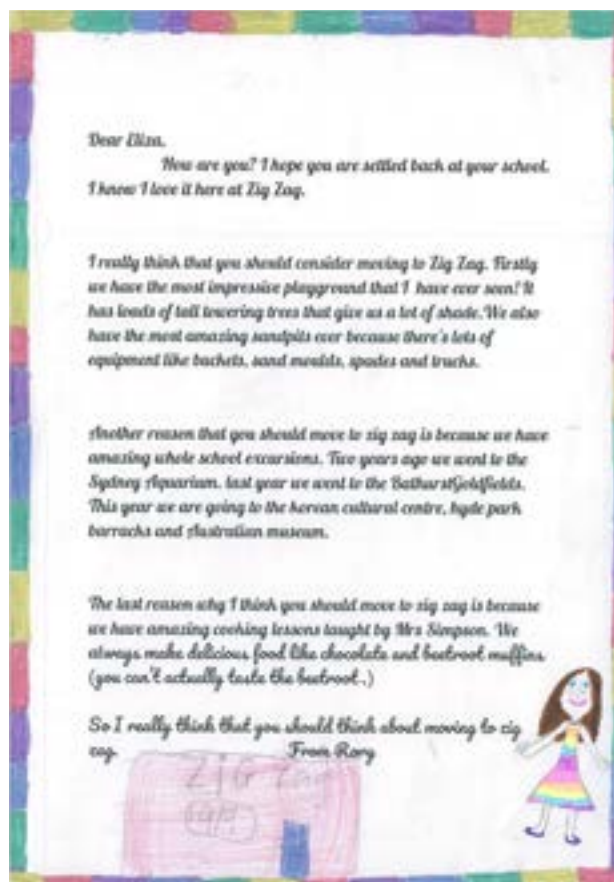 Dear Eliza,
How are you? I hope you are settled back at your school.
I know I love it here at Zig Zag.
I really think that you should consider moving to Zig Zag. Firstly
we have the most impressive playground that I have ever seen! It
has loads of tall towering trees that give us a lot of shade. We also
have the most amazing sandpits ever because there's lots of
equipment like buckets, sand moulds, spades and trucks.
Another reason that you should move to zig zag is because we have
amazing whole school excursions. Two years ago we went to the
Sydney Aquarium, last year we went to the BathurstGoldfields.
This year we are going to the korean cultural centre, hyde park
barracks and Australian museum.
The last reason why I think you should move to zig zag is because
we have amazing cooking lessons taught by Mrs Simpson. We
always make delicious food like chocolate and beetroot muffins
(you can't actually taste the beetroot.)
So I really think that you should think about moving to zig
zag. From Rory
ZiG Zag